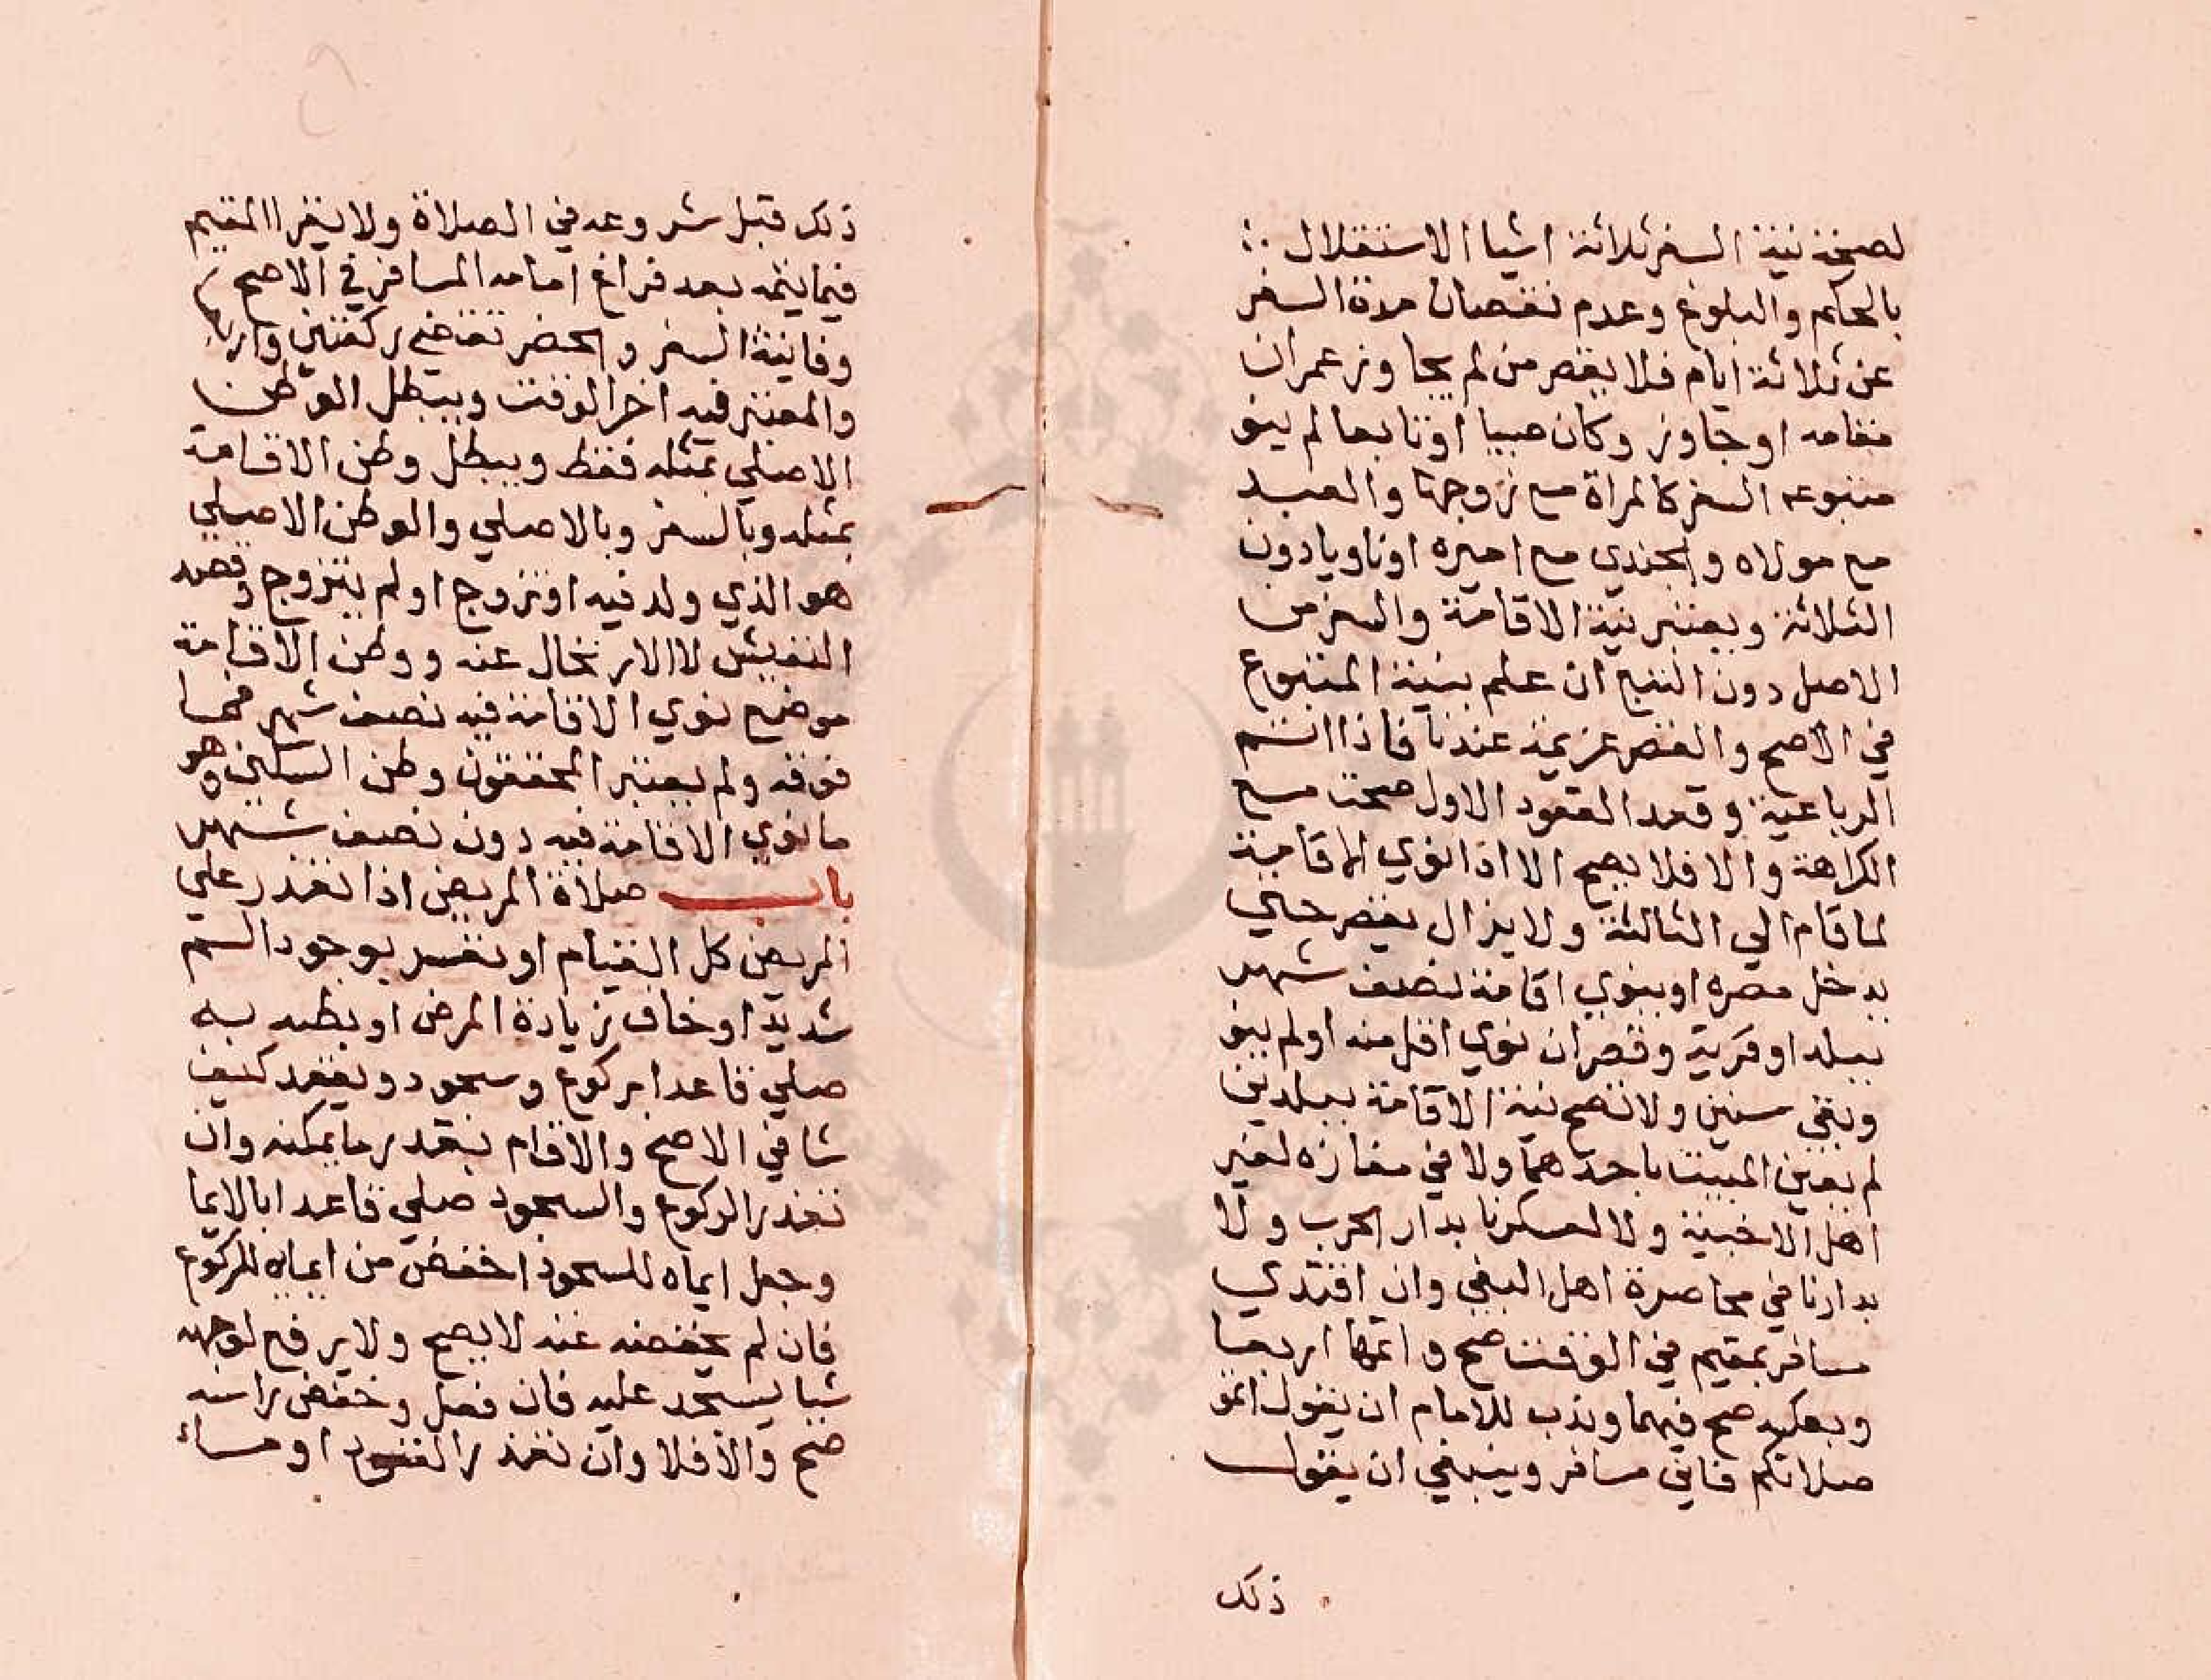 لصحة نية السفر ثلاثة اشيا الاستقلال
بالحكم والبلوغ وعدم نقصان مدة السفر
عن ثلاثة ايام فلا يقصر من لم يجاوز عمران
مقامه او جاوز وكان صبيا او تابعا لم ينو
متبوعه السفر كالمراة مع زوجها والعبد
مع مولاه والجندي مع اميره او ناويا دون
الثلاثة ويعتبر نية الاقامة والسفر من
الاصل دون التبع ان علم بنية المتبوع
في الاصح والقصر عزيمة عندنا فاذا اتم
الرباعية وقعد القعود الاول صحت مع
الكراهة والا فلا يصح الا اذا نوي الاقامة
لما قام الي الثالثة ولا يزال يقصر حتي
يدخل مصره او ينوي اقامة نصف شهر
ببلد او قرية وقصر ان نوي اقل منه او لم ينو
وبقي سنين ولا تصح نية الاقامة ببلدين
لم يعين المبيت باحدهما ولا في مفازه لغير
اهل الاخبية ولا لعسكرنا بدار الحرب ولا
بدارنا في محاصرة اهل البغي وان اقتدي
مسافر بمقيم في الوقت صح واتمها اربعا
وبعكسه صح فيهما وندب للامام ان يقول اتمو
صلاتكم فاني مسافر وينبغي ان يقول
ذلك
ذلك قبل شروعه في الصلاة ولا يقرا المقيم
فيما يتمه بعد فراغ امامه المسافر في الاصح
وفايتة السفر والحضر تقضي ركعتين واربعا
والمعتبر فيه اخر الوقت ويبطل الوطن
الاصلي بمثله فقط ويبطل وطن الاقامة
بمثله وبالسفر وبالاصلي والوطن الاصلي
هو الذي ولد فيه او تزوج او لم يتزوج وقصد
التعيش لا الارتحال عنه ووطن الاقامة
موضع نوي الاقامة فيه نصف شهر فما
فوقه ولم يعتبر المحققون وطن السكني وهو
ما نوي الاقامة فيه دون نصف شهر
باب صلاة المريض اذا تعذر علي
المريض كل القيام او تعسر بوجود الم
شديد او خاف زيادة المرض او بطئه به
صلي قاعدا بركوع وسجود ويقعد كيف
شا في الاصح والا قام بقدر ما يمكنه وان
تعذر الركوع والسجود صلي قاعدا بالايما
وجعل ايماه للسجود اخفض من ايمايه للركوع
فان لم يخفضه عنه لا يصح ولا يرفع لوجهه
شيا يسجد عليه فان فعل وخفض راسه
صح والا فلا وان تعذر القعود او